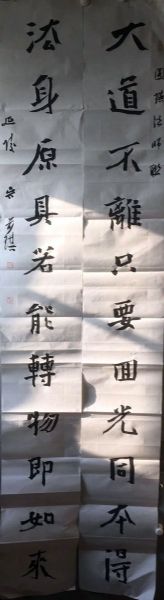 圓瑛法師聯
大道不離只要回光同本得
法身原具若能轉物即如來